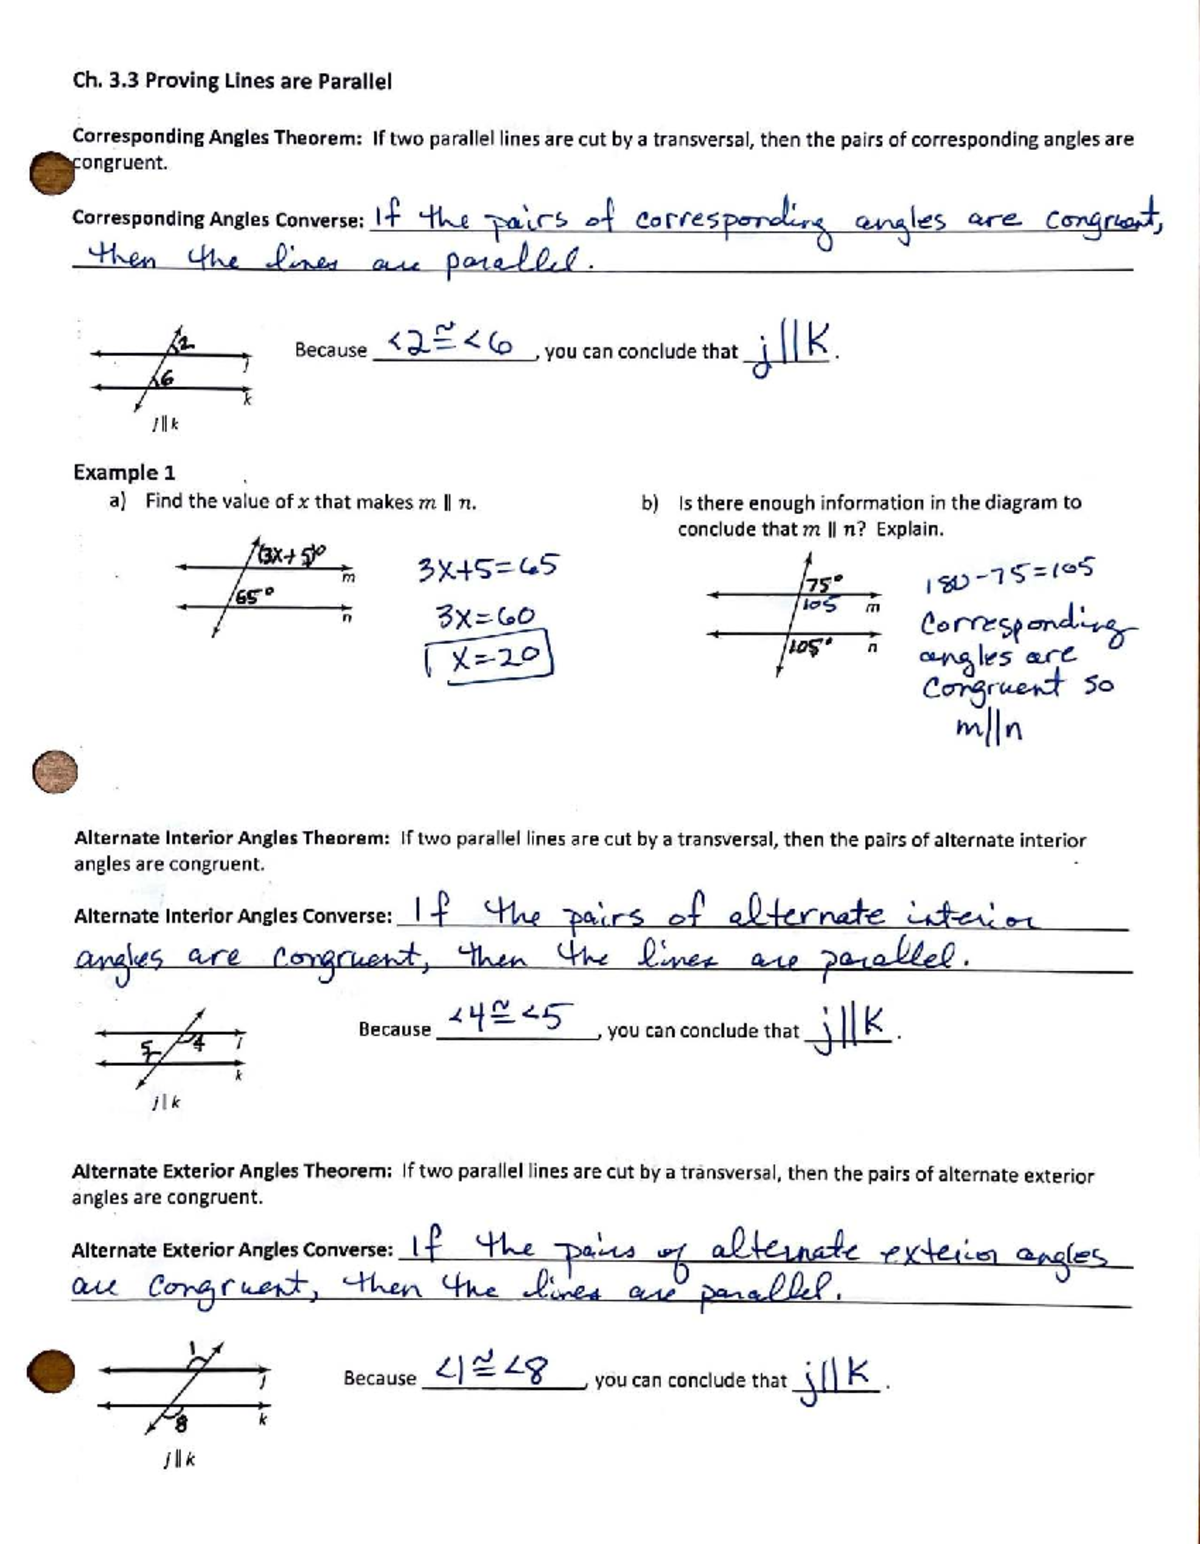 Ch. 3.3 Proving Lines are Parallel
Corresponding Angles Theorem: If two parallel lines are cut by a transversal, then the pairs of corresponding angles are
congruent.
Corresponding Angles Converse: If the pairs of corresponding angles are congruent,
then the lines are parallel.
2
6
j
k
j || k
Because <2≅<6, you can conclude that j||K.
Example 1
a) Find the value of x that makes m || n.
(3x+5)°
m
65°
n
3x+5=65
3x=60
x=20
b) Is there enough information in the diagram to
conclude that m || n? Explain.
75°
105
m
105°
n
180-75=105
Corresponding
angles are
congruent so
m||n
Alternate Interior Angles Theorem: If two parallel lines are cut by a transversal, then the pairs of alternate interior
angles are congruent.
Alternate Interior Angles Converse: If the pairs of alternate interior
angles are congruent, then the lines are parallel.
5
4
j
k
j || k
Because <4≅<5, you can conclude that j||K.
Alternate Exterior Angles Theorem: If two parallel lines are cut by a transversal, then the pairs of alternate exterior
angles are congruent.
Alternate Exterior Angles Converse: If the pairs of alternate exterior angles
are congruent, then the lines are parallel.
1
8
j
k
j || k
Because <1≅<8, you can conclude that j||K.